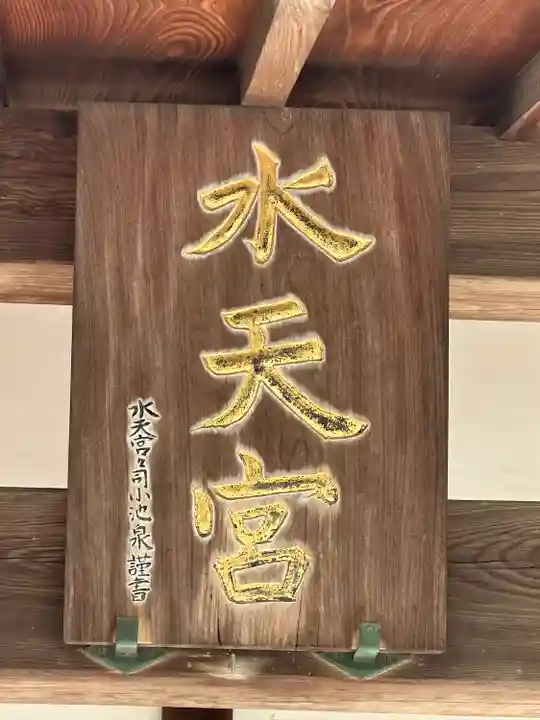 水天宮
水天宮々司小池泉謹書